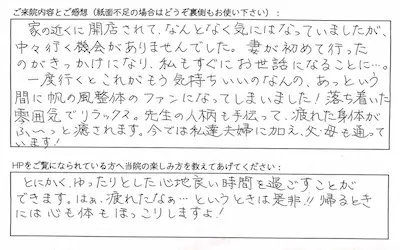 ご来院内容とご感想（紙面不足の場合はどうぞ裏側もお使い下さい）：
家の近くに開店されて、なんとなく気にはなっていましたが、
中々行く機会がありませんでした。妻が初めて行った
のがきっかけになり、私もすぐにお世話になることに…。
一度行くとこれがもう気持ちいいのなんの、あっという
間に帆の風整体のファンになってしまいました！落ち着いた
雰囲気でリラックス。先生の人柄も手伝って、疲れた身体が
ふ～っと癒されます。今では私達夫婦に加え、父・母も通って
います！
HPをご覧になられている方へ当院の楽しみ方を教えてあげてください：
とにかく、ゆったりとした心地良い時間を過ごすことが
できます。はぁ、疲れたなぁ…というときは是非!!帰るとき
には心も体もほっこりしますよ！